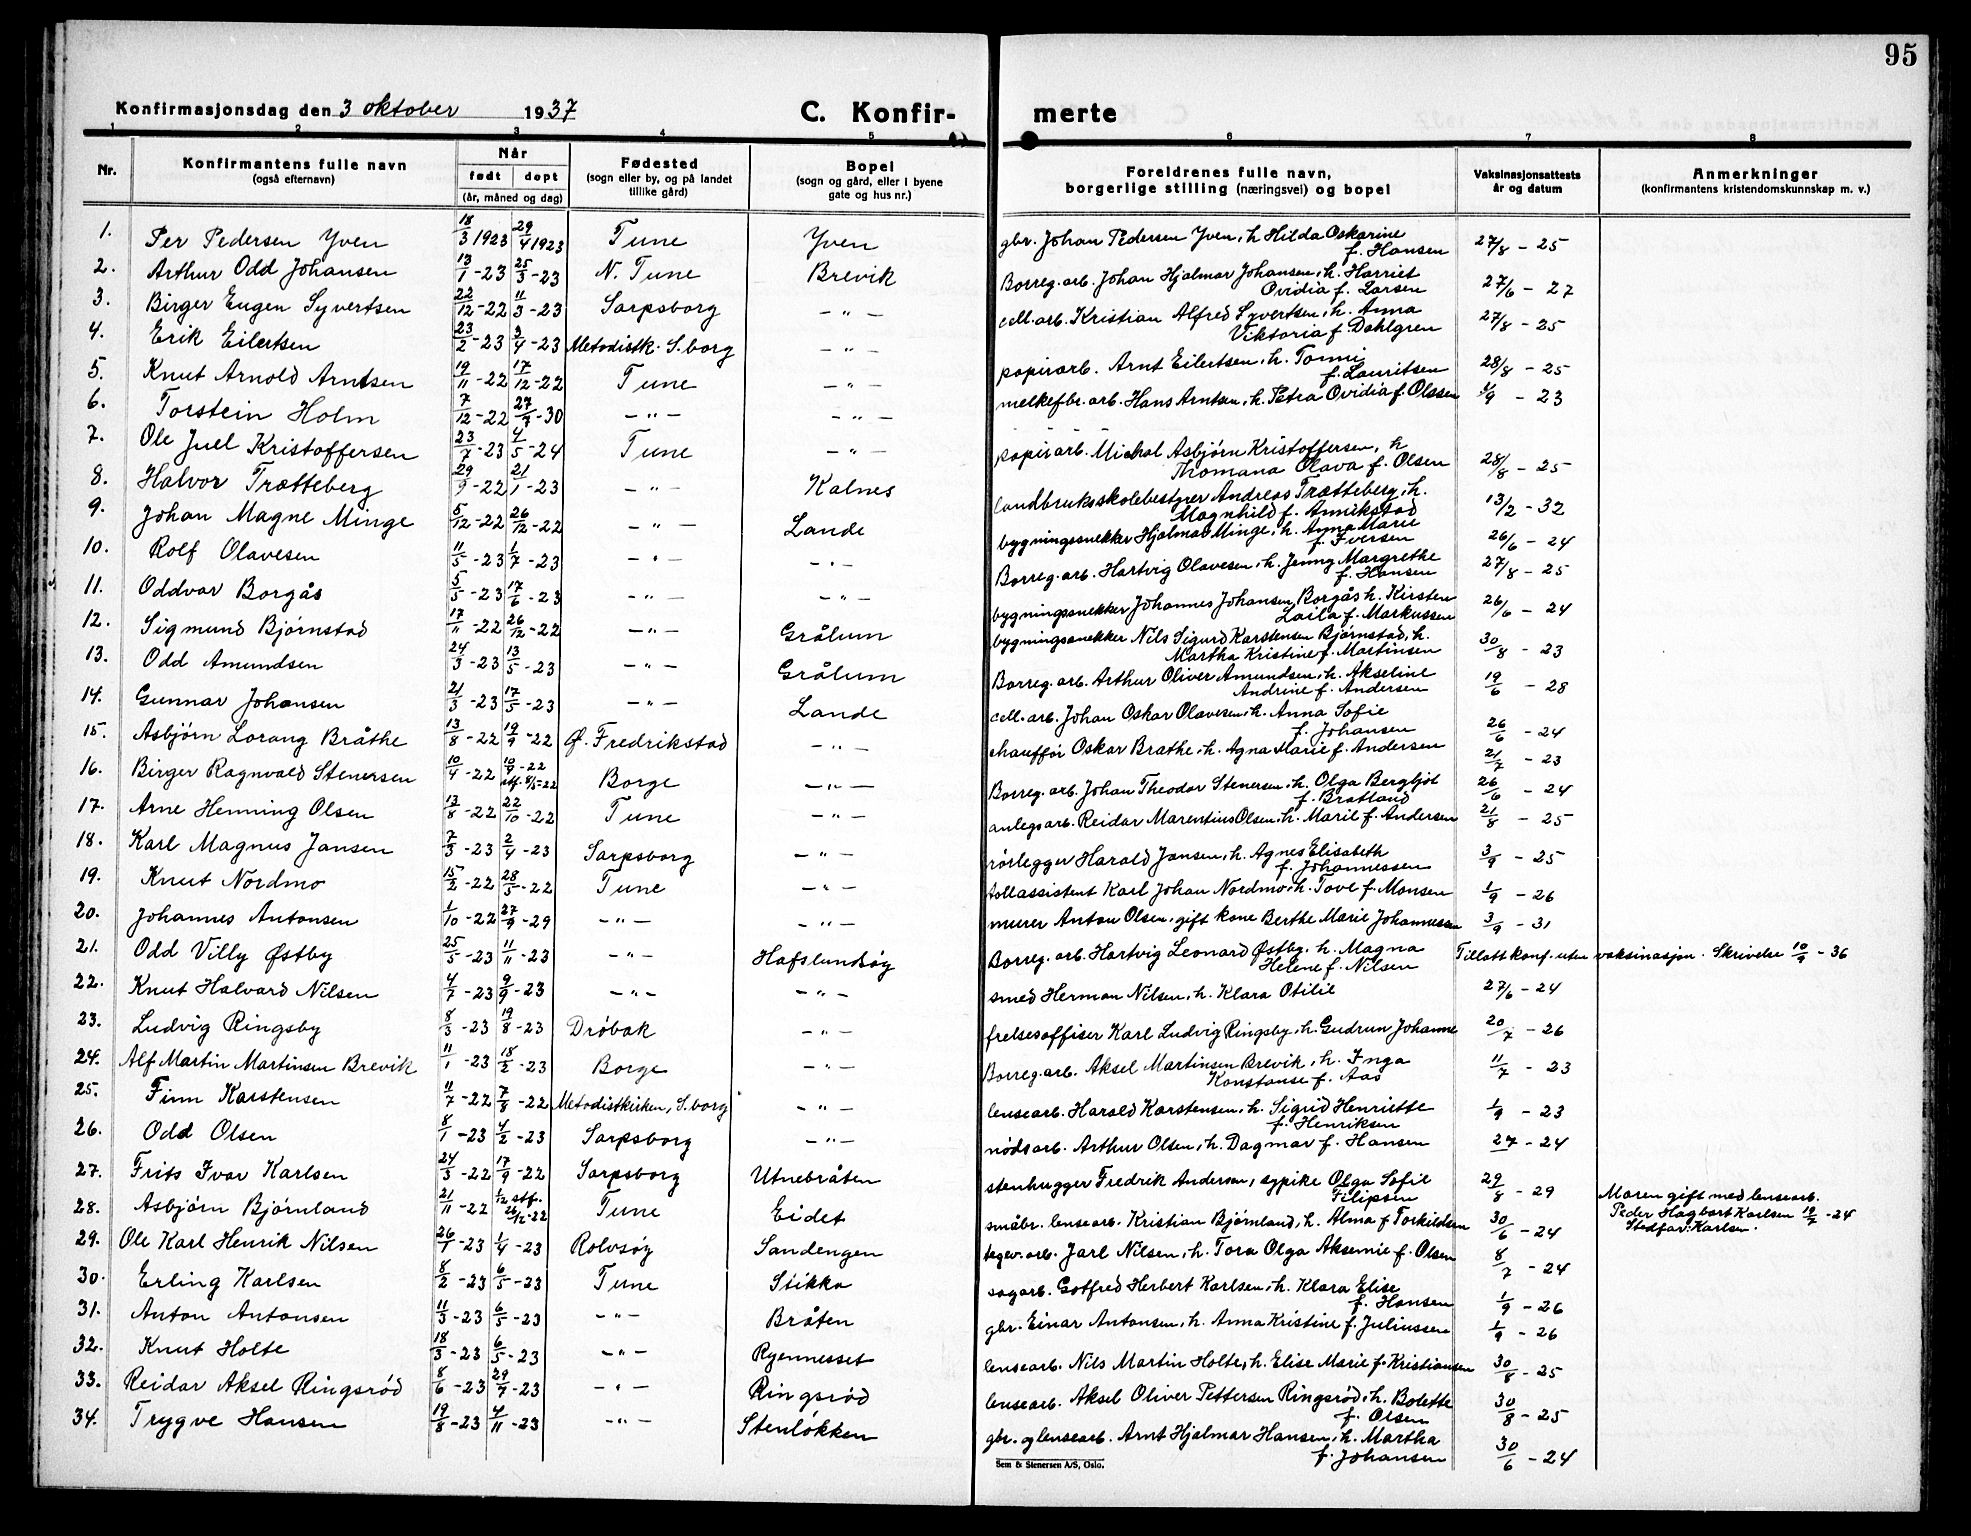 95
Konfirmasjonsdag den 3 oktober 1937 C. Konfir- merte
1 2 3 4 5 6 7 8
Nr. Konfirmantens fulle navn (også efternavn) Når født døpt (år, måned og dag) Fødested (sogn eller by, og på landet tillike gård) Bopel (sogn og gård, eller i byene gate og hus nr.) Foreldrenes fulle navn, borgerlige stilling (næringsvei) og bopel Vaksinasjonsattests år og datum Anmerkninger (konfirmantens kristendomskunnskap m. v.)
1. Per Pedersen Yven 18/3 1923 29/4 1923 Tune Yven gbr. Johan Pedersen Yven, h. Hilda Oskarine f. Hansen 27/8 - 25
2. Arthur Odd Johansen 13/1 -23 25/3 -23 N. Tune Brevik Borreg. arb. Johan Hjalmar Johansen, h. Harriet Ovidia f. Larsen 27/6 - 27
3. Birger Eugen Syvertsen 22/12 -22 11/3 -23 Sarpsborg — " — cell. arb. Kristian Alfred Syvertsen, h. Anna Viktoria f. Dahlgren 27/8 - 25
4. Erik Eilertsen 23/2 -23 /4 -23 Metodistk. S.borg — " — papirarb. Arnt Eilertsen, h. Tonni f. Lauritsen 28/8 - 25
5. Knut Arnold Arntsen 19/11 -22 17/12 -22 Tune — " — melkefbr. arb. Hans Arntsen, h. Petra Ovidia f. Olssen /9 - 23
6. Torstein Holm 7/12 -22 27/7 -30 — " — — " —
7. Ole Juel Kristoffersen 23/7 -23 4/5 -24 Tune — " — papirarb. Michal Asbjørn Kristoffersen, h Thomana Olava f. Olsen 28/8 - 25
8. Halvor Trætteberg 29/9 -22 21/1 -23 — " — Kalnes landbruksskolebestyrer Andreas Trætteberg, h. Magnhild f. Annikstad 13/2 - 32
9. Johan Magne Minge 5/12 -22 26/12 -22 — " — Lande bygningssnekker Hjalmar Minge, h. Anna Marie f. Iversen 26/6 - 24
10. Rolf Olavesen 11/5 -23 1/7 -23 — " — — " — Borreg. arb. Hartvig Olavesen, h. Jenny Margrethe f. Hansen 27/8 - 25
11. Oddvar Borgås 5/5 -23 17/6 -23 — " — — " — bygningssnekker Johannes Johansen Borgås h. Kirsten Laila f. Markussen 26/6 - 24
12. Sigmund Bjørnstad 17/11 -22 26/12 -22 — " — Grålum bygningssnekker Nils Sigurd Karstensen Bjørnstad, h. Martha Kristine f. Martinsen 30/8 - 23
13. Odd Amundsen 24/3 -23 13/5 -23 — " — Grålum Borreg. arb. Arthur Oliver Amundsen, h. Akseline Andrine f. Andersen 19/6 - 28
14. Gunnar Johansen 21/3 -23 17/5 -23 — " — Lande cell. arb. Johan Oskar Olavesen, h. Anna Sofie f. Johansen 26/6 - 24
15. Asbjørn Lorang Bråthe 13/8 -22 19/9 -22 Ø. Fredrikstad — " — chauffør Oskar Bråthe, h. Agna Marie f. Andersen 21/7 - 23
16. Birger Ragnvald Stenersen 10/4 -22 10/9 -22 stf. -22 Borge — " — Borreg. arb. Johan Theodor Stenersen, h. Olga Bergljot f. Bratland 26/6 - 24
17. Arne Henning Olsen 13/8 -22 22/10 -22 Tune — " — anlegsarb. Reidar Marentius Olsen, h. Marie f. Andersen 21/8 - 25
18. Karl Magnus Jansen 7/3 -23 2/4 -23 Sarpsborg — " — rørlegger Harald Jansen, h. Agnes Elisabeth f. Johannessen 3/9 - 25
19. Knut Nordmo 15/2 -22 28/5 -22 Tune — " — tollassistent Karl Johan Nordmo, h. Tove f. Monsen 1/9 - 26
20. Johannes Antonsen 1/10 -22 27/9 -29 — " — — " — murer Anton Olsen, gift kone Berthe Marie Johannessen 3/9 - 31
21. Odd Villy Østby 25/5 -23 11/11 -23 — " — Hafslundsøy Borreg. arb. Hartvig Leonard Østby, h. Magna Helene f. Nilsen Tillatt konf. uten vaksinasjon. Skrivelse 10/9 - 36
22. Knut Halvard Nilsen 4/7 -23 9/9 -23 — " — — " — smed Herman Nilsen, h. Klara Otilie 27/6 - 24
23. Ludvig Ringsby 8/3 -23 19/8 -23 Drøbak — " — frelsesoffiser Karl Ludvig Ringsby, h. Gudrun Johanne 20/7 - 26
24. Alf Martin Martinsen Brevik 11/1 -23 18/2 -23 Borge — " — Borreg. arb. Aksel Martinsen Brevik, h. Inga Konstanse f. Aas 11/7 - 23
25. Finn Karstensen 11/7 -22 7/8 -22 Metodistkirken, S.borg — " — lensearb. Harald Karstensen, h. Sigrid Henriette f. Henriksen 1/9 - 23
26. Odd Olsen 8/1 -23 4/2 -23 Sarpsborg — " — nødsarb. Arthur Olsen, h. Dagmar f. Hansen 27 - 24
27. Frits Ivar Karlsen 24/3 -22 17/9 -22 Sarpsborg Utnebråten stenhugger Fredrik Anderson, sypike Olga Sofie Filipsen 29/8 - 29 Moren gift med lensearb. Peder Hagbart Karlsen 19/7 - 24 Stedfar: Karlsen.
28. Asbjørn Bjørnland 21/11 -22 1/12 stf. 26/12 -22 Tune Eidet småbr. lensearb. Kristian Bjørnland, h. Alma f Torkildsen 30/6 - 24
29. Ole Karl Henrik Nilsen 26/1 -23 1/4 -23 Rolvsøy Sandengen arb. Jarl Nilsen, h. Tora Olga Aksemie f. Olsen 8/7 - 24
30. Erling Karlsen 8/2 -23 6/5 -23 Tune Stikka sagarb. Gotfred Herbert Karlsen, h. Klara Elise f. Hansen 1/9 - 26
31. Anton Antonsen 11/3 -23 6/5 -23 — " — Bråten gbr. Einar Antonsen, h. Anna Kristine f. Juliussen 1/9 - 26
32. Knut Holte 18/3 -23 6/5 -23 — " — Ryennesset lensearb. Nils Martin Holte, h. Elise Marie f. Kristiansen 30/8 - 25
33. Reidar Aksel Ringsrød 8/6 -23 29/7 -23 — " — Ringsrød lensearb. Aksel Oliver Pettersen Ringsrød, h. Bolette f. Olsen 30/8 - 25
34. Trygve Hansen 19/8 -23 4/11 -23 — " — Stenløkken gbr. og lensearb. Arnt Hjalmar Hansen, h. Martha f. Johansen 30/6 - 24
Sem & Stenersen A/S, Oslo.